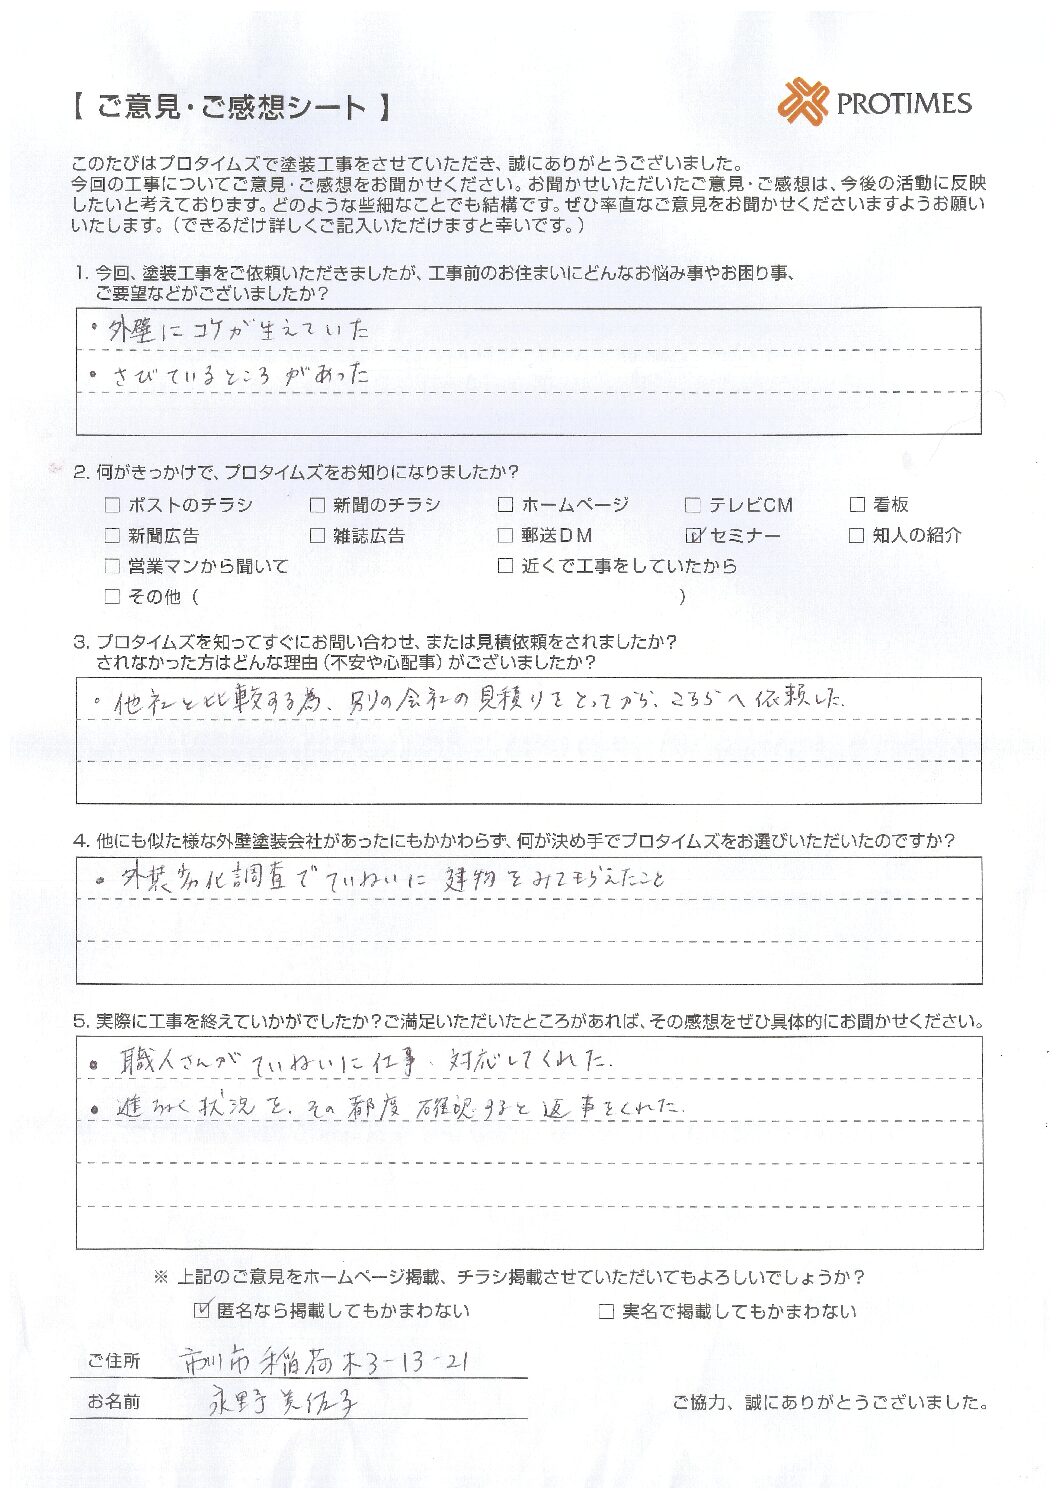 【 ご意見・ご感想シート 】
PROTIMES
このたびはプロタイムズで塗装工事をさせていただき、誠にありがとうございました。
今回の工事についてご意見・ご感想をお聞かせください。お聞かせいただいたご意見・ご感想は、今後の活動に反映
したいと考えております。どのような些細なことでも結構です。ぜひ率直なご意見をお聞かせくださいますようお願い
いたします。（できるだけ詳しくご記入いただけますと幸いです。）
1. 今回、塗装工事をご依頼いただきましたが、工事前のお住まいにどんなお悩み事やお困り事、
ご要望などがございましたか？
・外壁にコケが生えていた
・さびているところがあった
2. 何がきっかけで、プロタイムズをお知りになりましたか？
□ ポストのチラシ □ 新聞のチラシ □ ホームページ □ テレビCM □ 看板
□ 新聞広告 □ 雑誌広告 □ 郵送DM ☑ セミナー □ 知人の紹介
□ 営業マンから聞いて □ 近くで工事をしていたから
□ その他（ ）
3. プロタイムズを知ってすぐにお問い合わせ、または見積依頼をされましたか？
されなかった方はどんな理由（不安や心配事）がございましたか？
・他社と比較する為、別の会社の見積りをとってから、こちらへ依頼した。
4. 他にも似た様な外壁塗装会社があったにもかかわらず、何が決め手でプロタイムズをお選びいただいたのですか？
・外装劣化調査でていねいに建物をみてもらえたこと
5. 実際に工事を終えていかがでしたか？ご満足いただいたところがあれば、その感想をぜひ具体的にお聞かせください。
・職人さんがていねいに仕事、対応してくれた。
・進ちょく状況を、その都度確認すると返事をくれた。
※ 上記のご意見をホームページ掲載、チラシ掲載させていただいてもよろしいでしょうか？
☑ 匿名なら掲載してもかまわない □ 実名で掲載してもかまわない
ご住所 市川市稲荷木3-13-21
お名前 永野美佐子
ご協力、誠にありがとうございました。